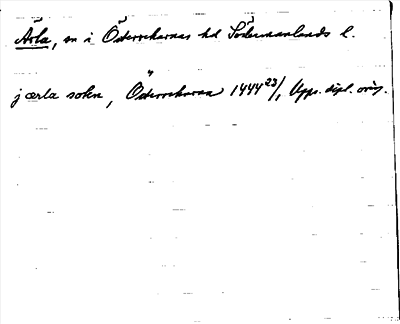 Ärla, sn i Österrekarnes hd Södermanlands l.
j ærla sokn, Østerrekarna 1444 23/1 Upps. dipl. orig.